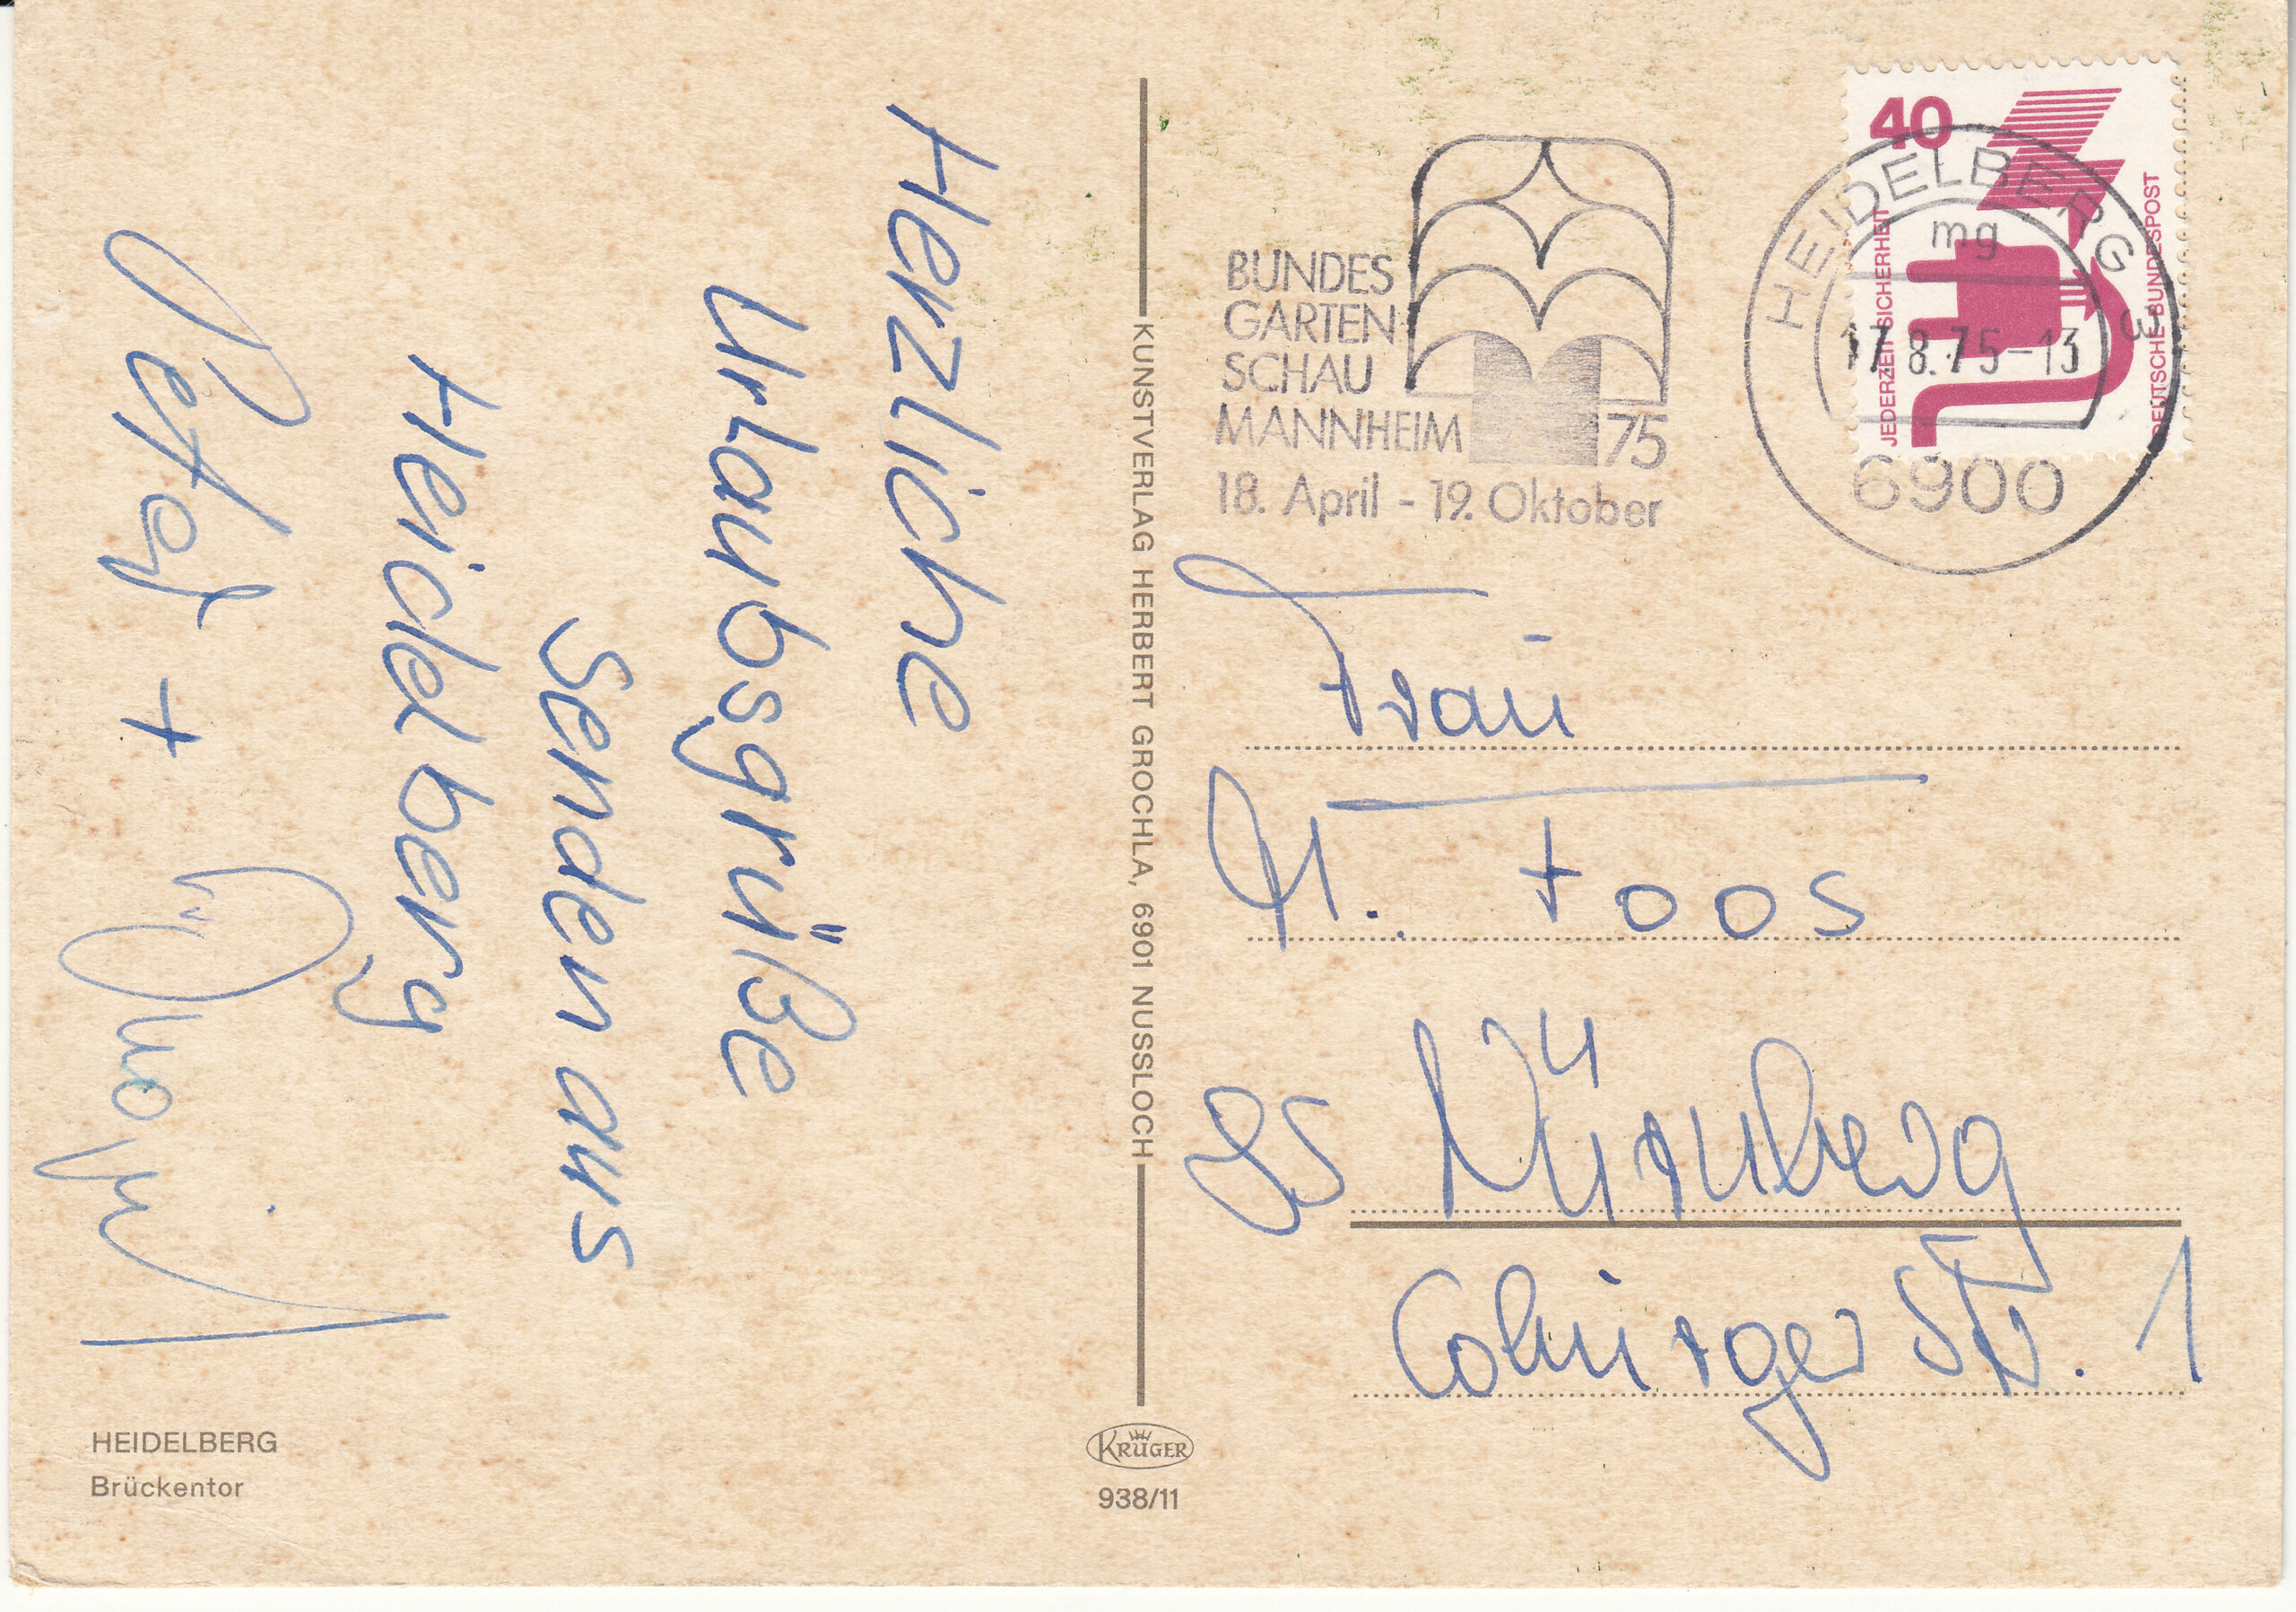 Herzliche
Urlaubsgrüße
senden aus
Heidelberg
Peter +
HEIDELBERG
Brückentor
KUNSTVERLAG HERBERT GROCHLA, 6901 NUSSLOCH
KRÜGER
938/11
BUNDES
GARTEN
SCHAU
MANNHEIM 75
18. April - 19. Oktober
40
JEDERZEIT SICHERHEIT
DEUTSCHE BUNDESPOST
HEIDELBERG 3
mg
17.8.75-13
6900
Frau
Foos
85 Nürnberg
Str. 1